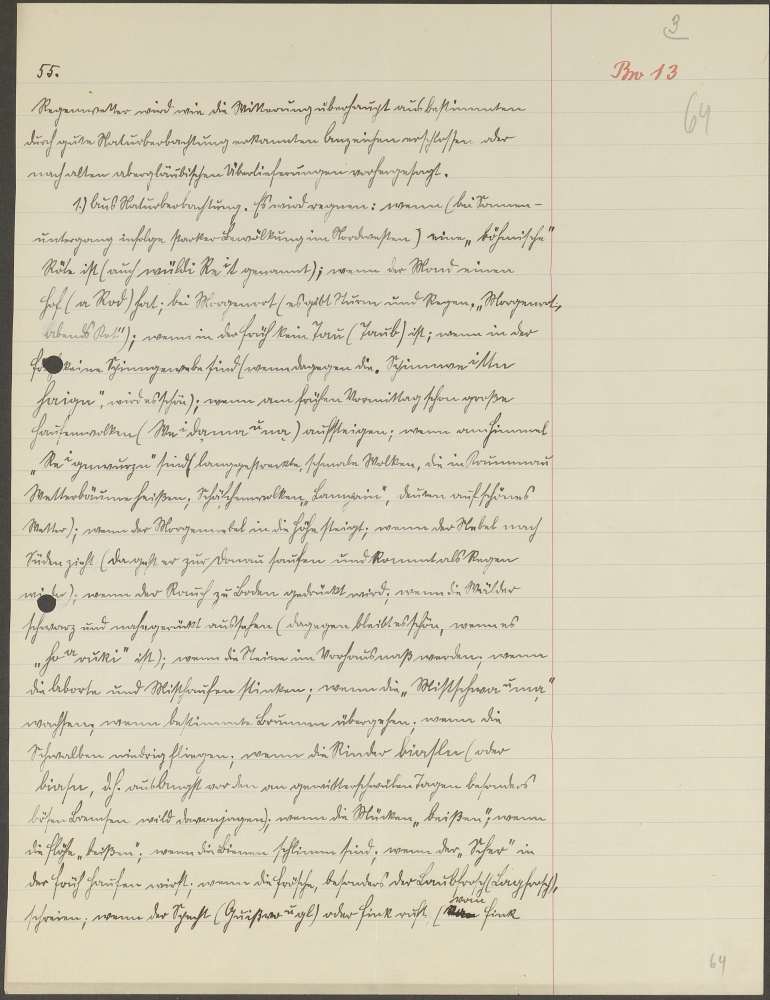 3
55.
Bw 13
64
Regenwetter wird wie die Witterung überhaupt aus bestimmten
durch gute Naturbeobachtung erkannten Anzeichen erschlossen oder
nach alten abergläubischen Überlieferungen vorhergesagt.
1.) Aus Naturbeobachtung. Es wird regnen: wenn (bei Sonnen-
untergang infolge starker Bewölkung im Nordwesten) eine „böhmische"
Röte ist (auch wüldi Reit genannt); wenn der Mond einen
Hof (a Rod) hat; bei Morgenrot (es gibt Sturm und Regen, „Morgenrot,
abends Kot"); wenn in der Früh kein Tau (Taub) ist; wenn in der
keine Spinngewebe sind (wenn dagegen die „Spinnweittn
haign", wird es schön); wenn am frühen Vormittag schon große
Haufenwolken (Weidamauma) aufsteigen; wenn am Himmel
„Reignwurzn" sind (langgestreckte, schmale Wolken, die in Krummau
Wetterbäume heißen; Schäfchenwolken, „Lampain", deuten auf schönes
Wetter); wenn der Morgennebel in die Höhe steigt; wenn der Nebel nach
Süden zieht (da geht er zur Donau saufen und kommt als Regen
wieder); wenn der Rauch zu Boden gedrückt wird; wenn die Wälder
schwarz und nahegerückt aussehen (dagegen bleibt es schön, wenn es
„hoaruki" ist); wenn die Steine im Vorhaus naß werden; wenn
die Aborte und Misthaufen stinken; wenn die „Mistschwauma"
wachsen; wenn bestimmte Brunnen übergehen; wenn die
Schwalben niedrig fliegen; wenn die Rinder biasln (oder
biasn, d.h. aus Angst vor den an gewitterschwülen Tagen besonders
bösen Bremsen wild davonjagen); wenn die Mücken „beißen"; wenn
die Flöhe „beißen"; wenn die Bienen schlimm sind; wenn der „Scher" in
der Früh Haufen wirft; wenn die Frösche, besonders der Laubfrosch (Lagfrosch),
schreien; wenn der Specht (Guißvougl) oder Fink ruft, (vom Fink
64